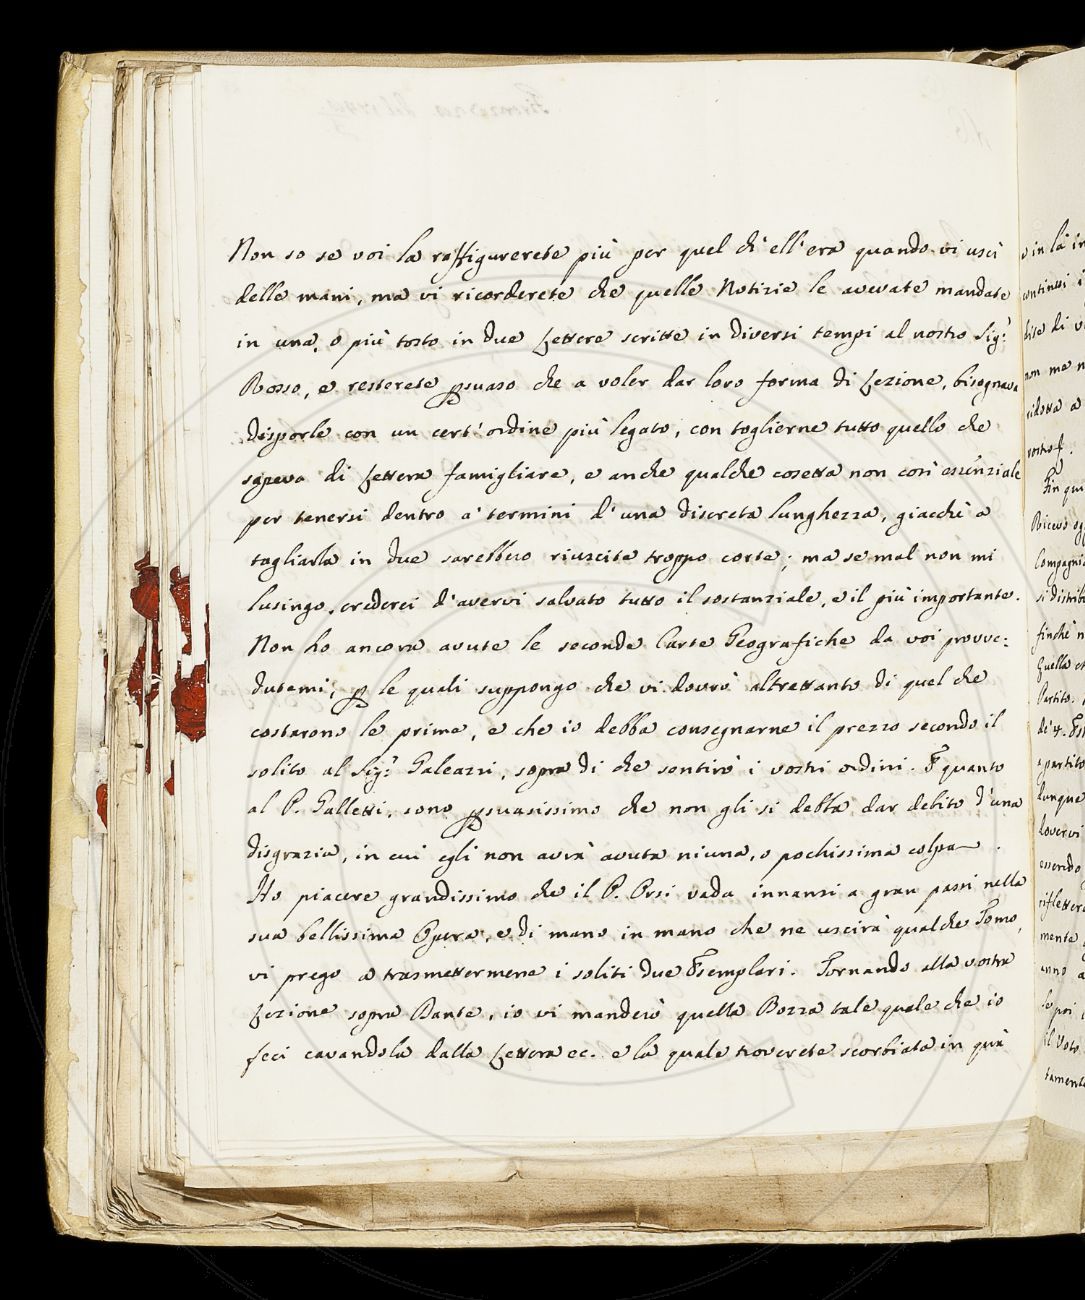 Non so se voi la raffigurerete più per quel ch'ell'era quando vi uscì
delle mani, ma vi ricorderete che quelle Notizie le avevate mandate
in una, o più tosto in due Lettere scritte in diversi tempi al nostro Sig.
Rosso, e resterete psuaso che a voler dar loro forma di Lezione, bisognava
disporle con un cert'ordine più legato, con toglierne tutto quello che
sapeva di Lettera famigliare, e anche qualche cosetta non così essenziale
per tenersi dentro a' termini d'una discreta lunghezza, giacchè a
tagliarla in due sarebbero riuscite troppo corte; ma se mal non mi
lusingo, crederei d'avervi salvato tutto il sostanziale, e il più importante.
Non ho ancora avute le seconde Carte Geografiche da voi provve:
dutemi, p le quali suppongo che vi dovrò altrettanto di quel che
costarono le prime, e che io debba consegnarne il prezzo secondo il
solito al Sig. Galeazzi, sopra di che sentirò i vostri ordini. E quanto
al P. Galletti, sono psuasissimo che non gli si debba dar debito d'una
disgrazia, in cui egli non avrà avuta niuna, o pochissima colpa.
Ho piacere grandissimo che il P. Orsi vada innanzi a gran passi nella
sua bellissima Opera, e di mano in mano che ne uscirà qualche Tomo,
vi prego a trasmettermene i soliti due Esemplari. Tornando alla vostra
Lezione sopra Dante, io vi manderò quella Bozza tale quale che io
feci cavandola dalla Lettera ec. e la quale troverete scorbiata in quà